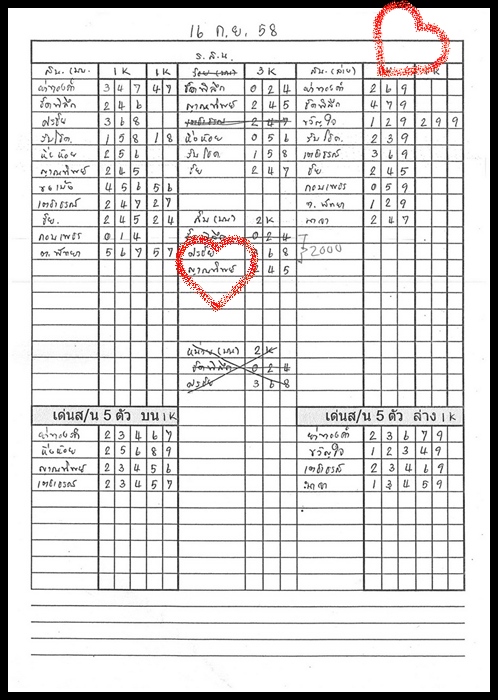 16 ก.ย. 58
ร.ส.น.
สิบ.(บน) 1K 1K
ผ่าทองคำ 3 4 7 4 7
ชัดพิลึก 2 4 6
ศรชัย 3 6 8
รับโชค. 1 5 8 1 8
น้องน้อย 2 5 6
ญาณทิพย์ 2 4 5
4 5 6 5 6
เตมีธรณ์ 2 4 7 2 7
ชัย. 2 4 5 2 4
0 1 4
5 6 7 5 7
ร้อย (บน) 3K
ชัดพิลึก 0 2 4
ญาณทิพย์ 2 4 5
เตมีธรณ์ 2 4 7
น้องน้อย 0 5 6
รับโชค 1 5 8
ชัย 2 4 7
สิบ (บน) 2K
ชัดพิลึก 0 2 4
ศรชัย 6 8
ญาณทิพย์ 4 5
2000
หน่วย (บน) 2K
ชัดพิลึก 0 2 4
ศรชัย 3 6 8
สิบ. (ล่าง)
ผ่าทองคำ 2 6 9
ชัดพิลึก 4 7 9
ขวัญใจ 1 2 9 2 9 9
รับโชค. 2 3 9
เตมีธรณ์ 3 6 9
ชัย 2 4 5
0 5 9
1 2 9
2 4 7
เด่นส/น 5 ตัว บน 1K
ผ่าทองคำ 2 3 4 6 7
น้องน้อย 2 5 6 8 9
ญาณทิพย์ 2 3 4 5 6
เตมีธรณ์ 2 3 4 5 7
เด่นส/น 5 ตัว ล่าง 1K
ผ่าทองคำ 2 3 6 7 9
ขวัญใจ 1 2 3 4 9
เตมีธรณ์ 2 3 4 6 9
1 3 4 5 9